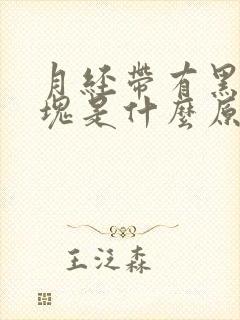 月経帶有黑
塊是什麼原
王泛森